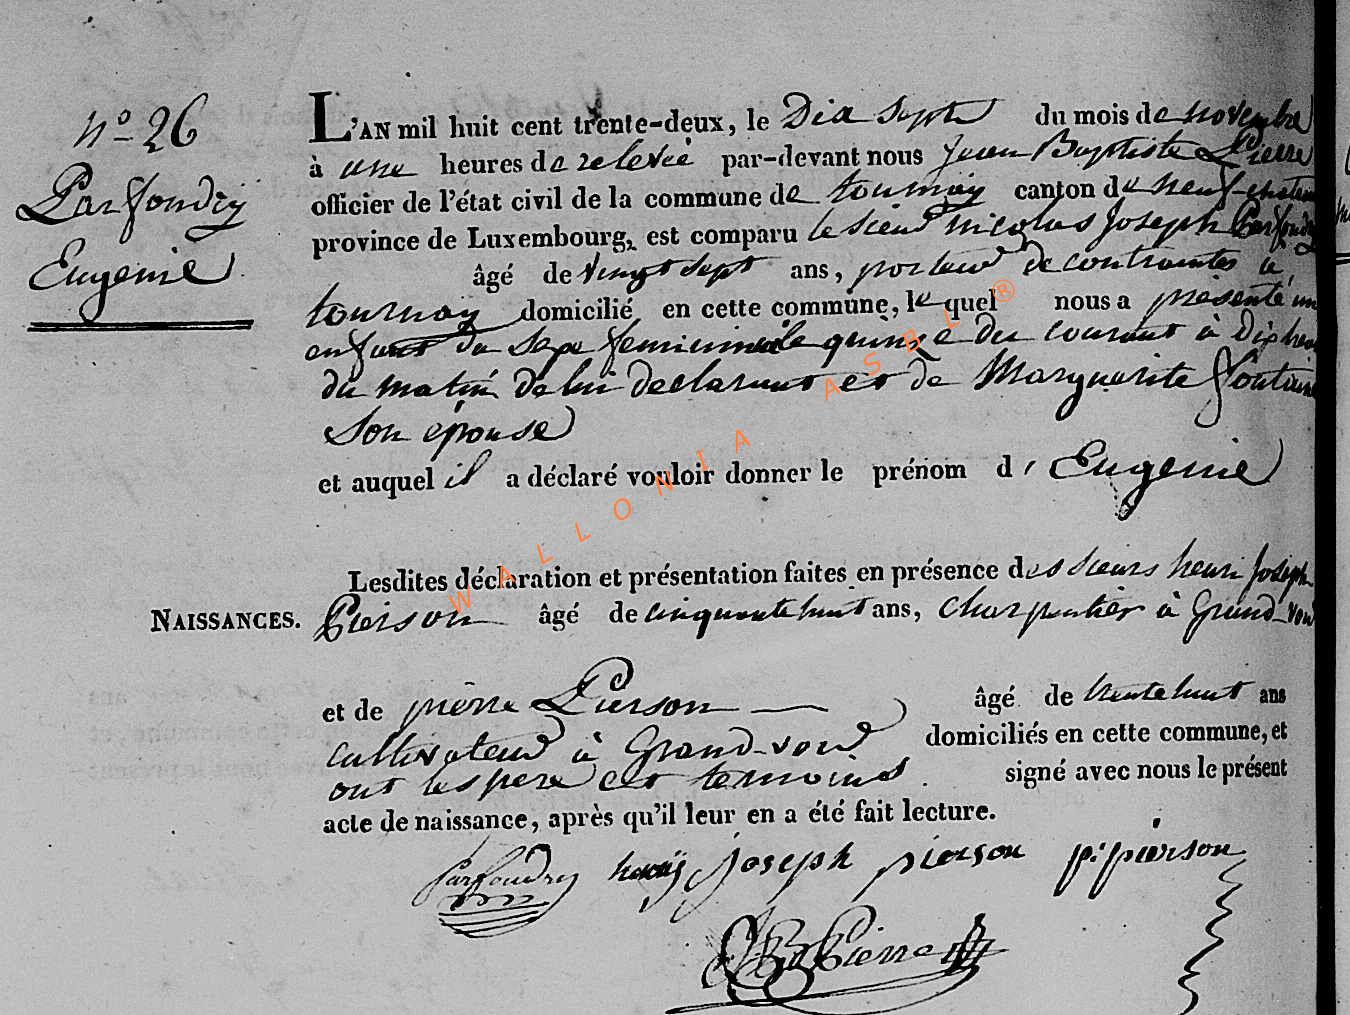 N.o 26
Parfondry
Eugenie
L'AN mil huit cent trente-deux, le Dix Sept du mois de novembre
à une heures de relevée par-devant nous Jean Baptiste Pierre
officier de l'état civil de la commune de tournay canton de neufchateau
province de Luxembourg, est comparu le sieur nicolas Joseph Parfondry
âgé de vingt sept ans, porteur de contraintes à
tournay domicilié en cette commune, lequel nous a presenté un
enfant du Sexe feminin né le quinze du courant à Dix heures
du matin de lui declarant et de Marguerite fontaine
Son épouse
et auquel il a déclaré vouloir donner le prénom d' Eugenie
Lesdites déclaration et présentation faites en présence des sieurs henri Joseph
NAISSANCES.
Pierson âgé de cinquante huit ans, charpentier à Grand-voir
et de pierre Pierson âgé de trente huit ans
cultivateur à Grand-voir domiciliés en cette commune, et
ont les pere et temoins signé avec nous le présent
acte de naissance, après qu'il leur en a été fait lecture.
Parfondry henrij joseph pierson p: pierson
JB Pierre
WALLONIA ASBL ®